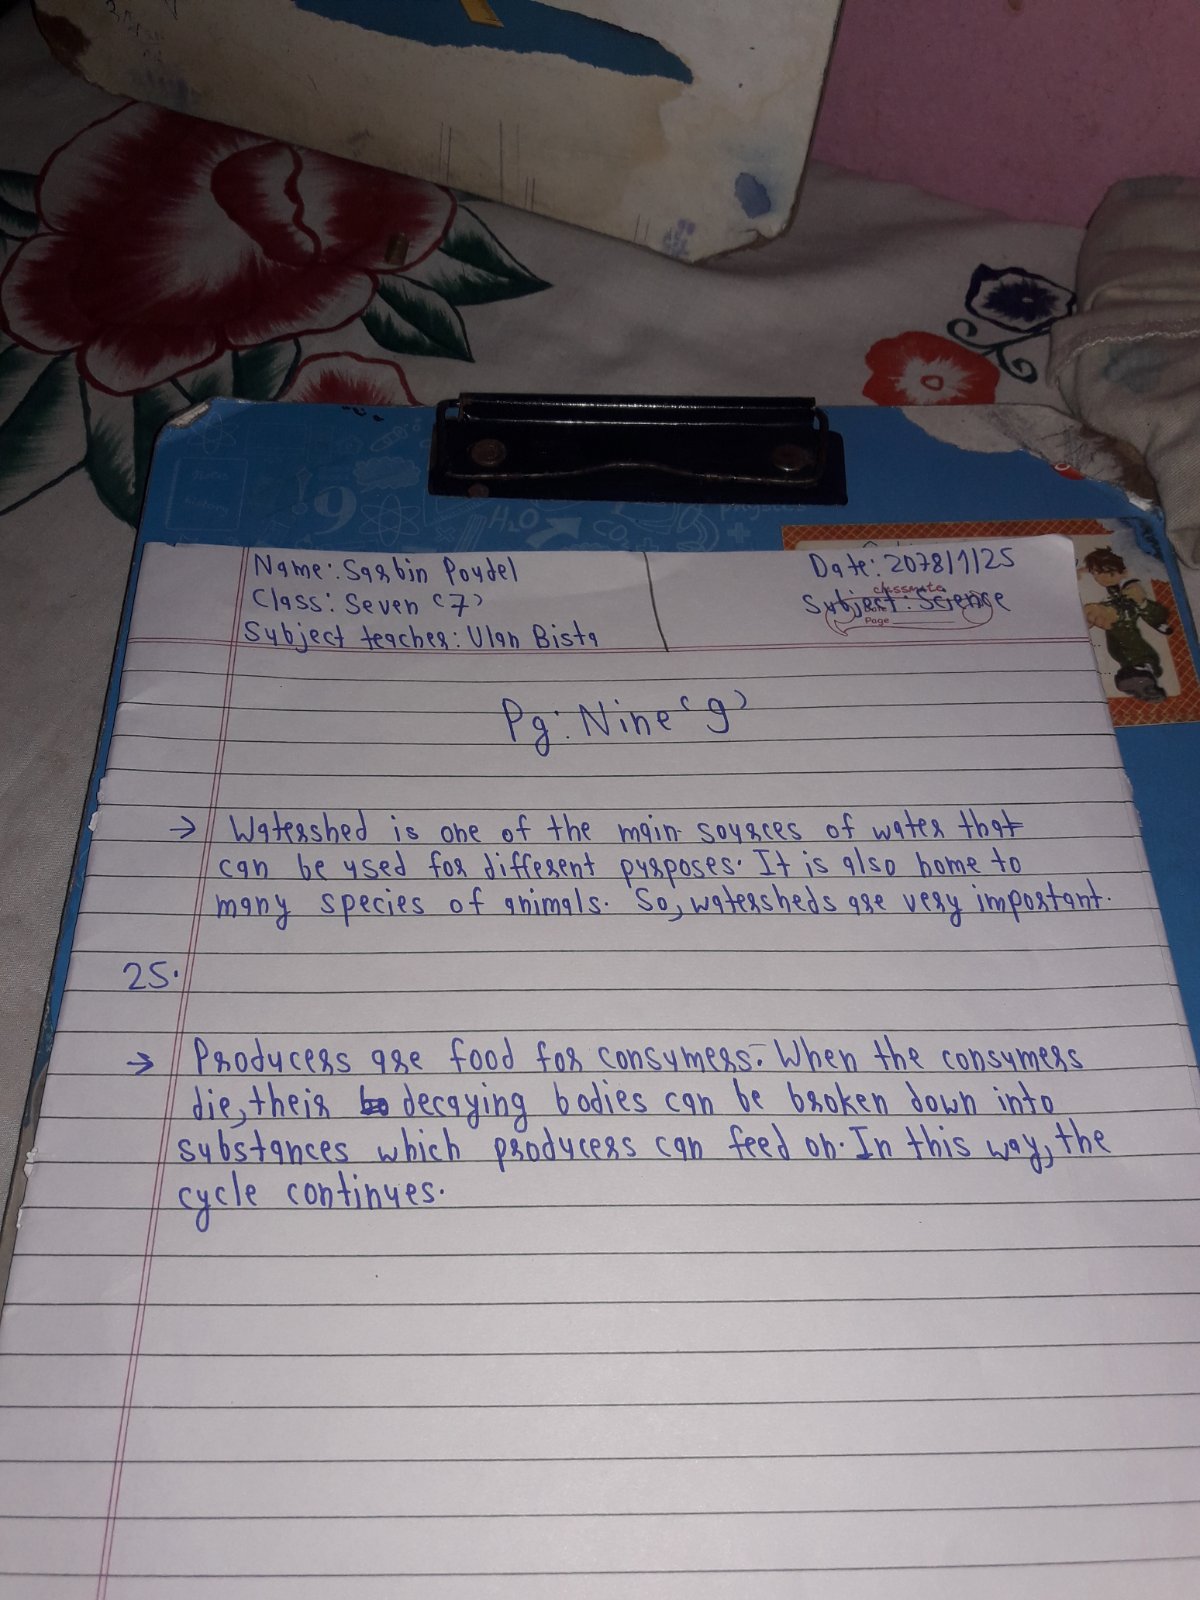 Name: Sarbin Poudel
Class: Seven (7)
Subject teacher: Ulan Bista
Date: 2078/1/25
classmate
Subject: Science
Page
Pg: Nine (9)
→ Watershed is one of the main sources of water that
can be used for different purposes. It is also home to
many species of animals. So, watersheds are very important.
25.
→ Producers are food for consumers. When the consumers
die, their decaying bodies can be broken down into
substances which producers can feed on. In this way, the
cycle continues.
Notes
history
!9
H₂O
+